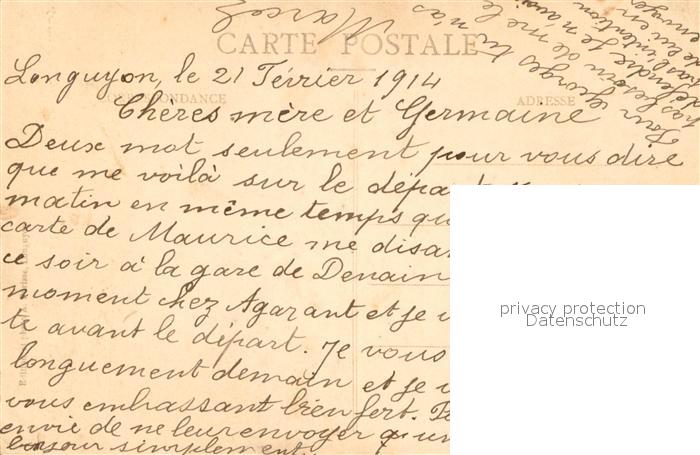 CARTE POSTALE
CORRESPONDANCE
ADRESSE
Longuyon, le 21 Février 1914
Chères mère et Germaine
Deux mot seulement pour vous dire
que me voilà sur le départ
matin en même temps qu
carte de Maurice me disa
ce soir à la gare de Denain
moment chez Agarant et je v
te avant le départ. Je vous
longuement demain et je v
vous embrassant bien fort.
envie de ne leur envoyer qu'un
bonjour simplement.
Pour Georges tu
pas besoin de me le
défendre je n'
pas l'intention
de lui en
envoyer
Marcel
privacy protection
Datenschutz